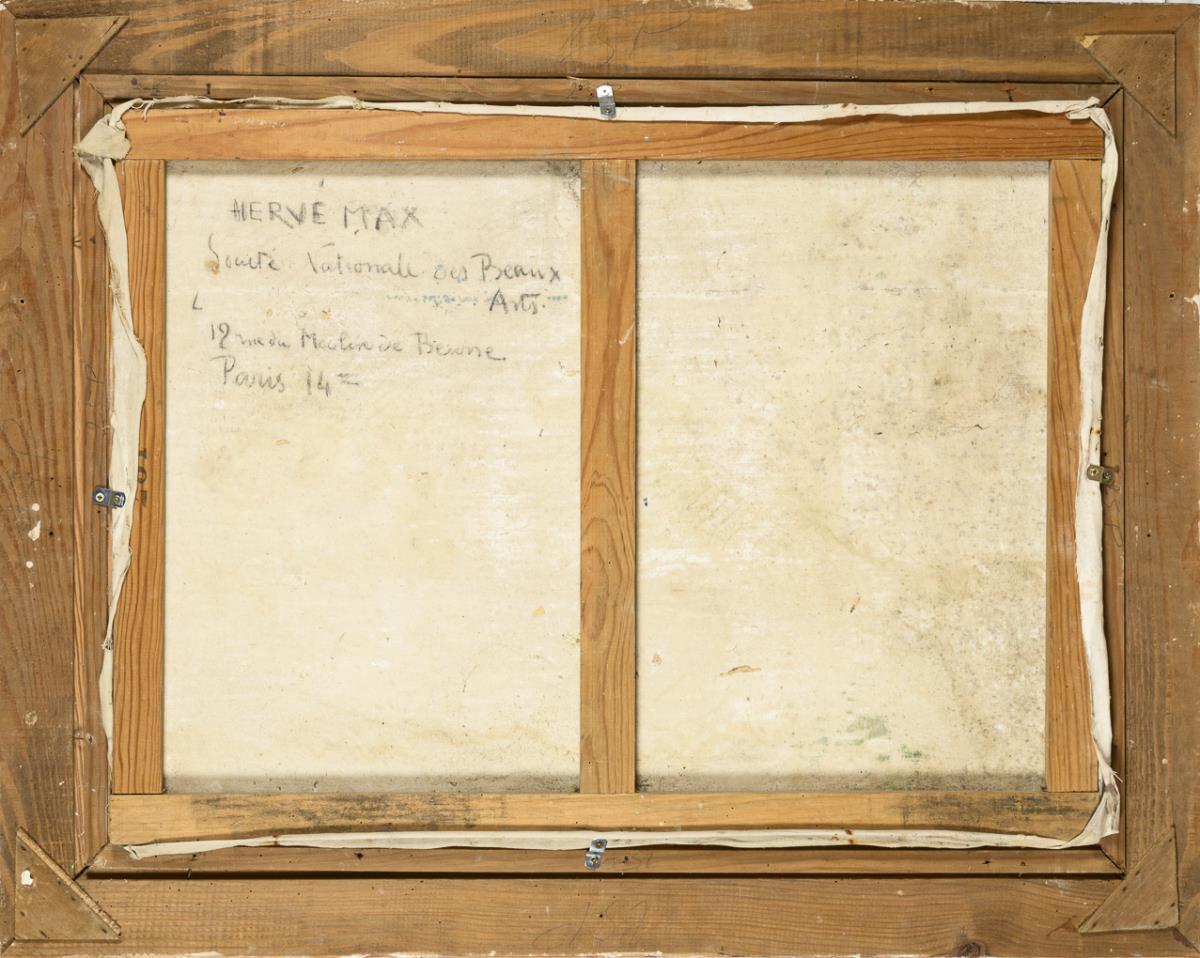 HERVÉ MAX
Société Nationale des Beaux
Arts.
12 rue du Moulin de Beurre
Paris 14=